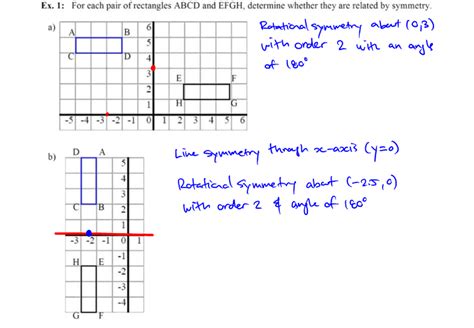 Ex. 1: For each pair of rectangles ABCD and EFGH, determine whether they are related by symmetry.
a)
A B 6
5
C D 4
3
E F
2
H G
1
-5 -4 -3 -2 -1 0 1 2 3 4 5 6
Rotational symmetry about (0,3)
with order 2 with an angle
of 180°
b)
D A
5
4
3
C B 2
1
-3 -2 -1 0 1
H E -1
-2
-3
-4
G F
Line symmetry through x-axis (y=0)
Rotational symmetry about (-2.5, 0)
with order 2 & angle of 180°